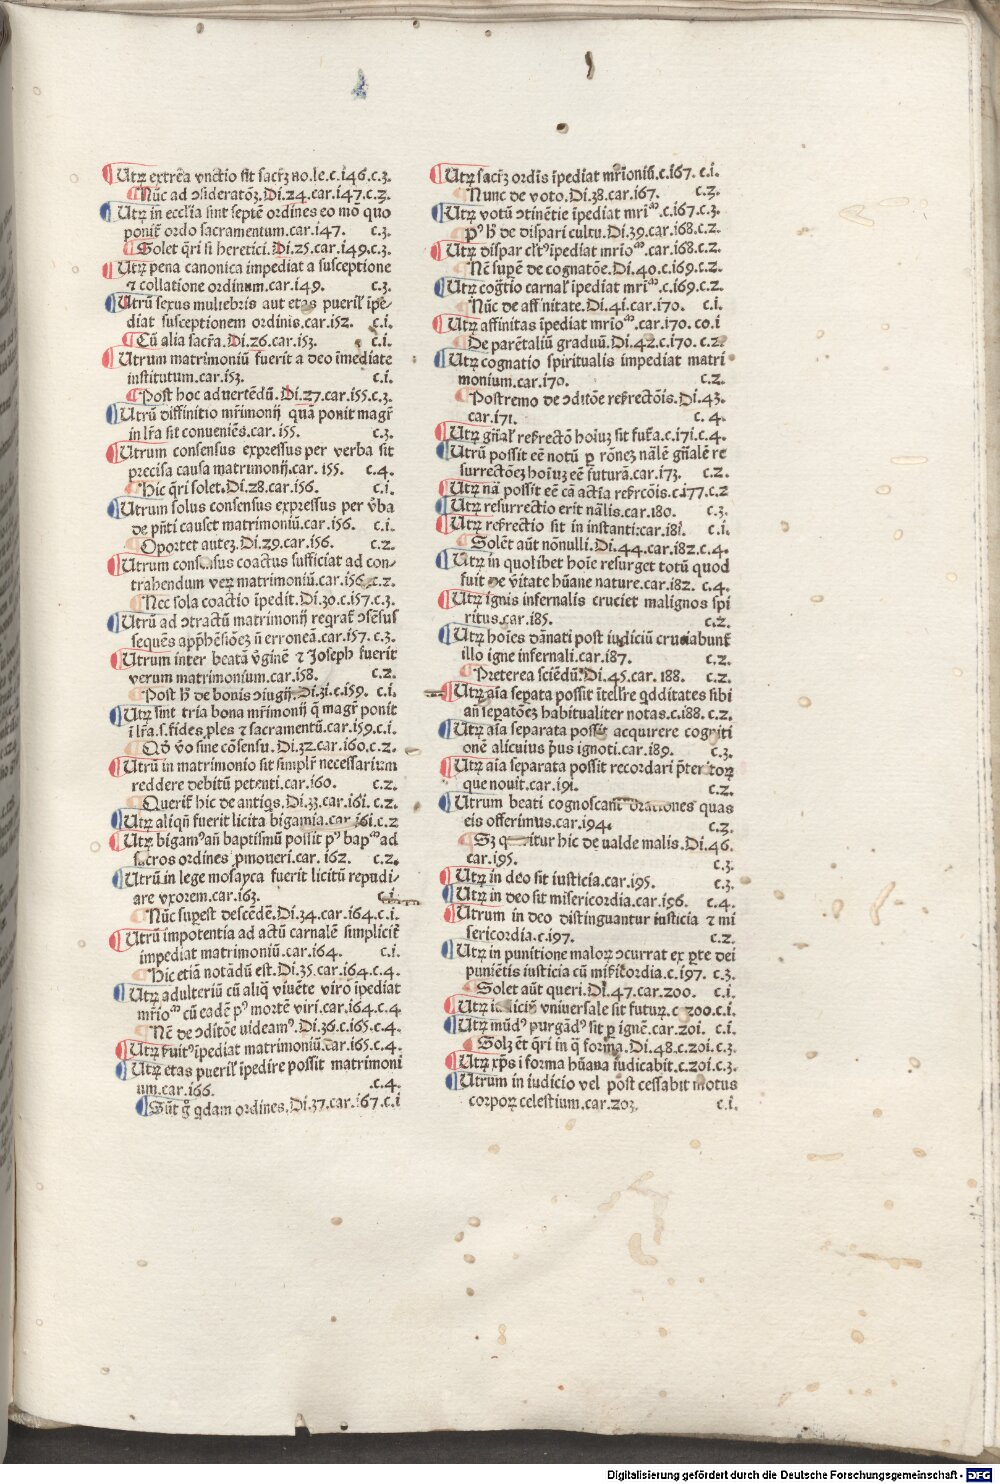 Utrꝫ extrēa vnctio sit sacr̄ꝫ no.le.c.i46.c.3.
Nūc ad ꝯsideratōꝫ.Di.24.car.i47.c.2.
Utrꝫ in ecclīa sint septē ordines eo mō quo
ponit̄ ordo sacramentum.car.i47. c.3.
Solet q̄ri si heretici.Di.25.car.i49.c.3.
Utrꝫ pena canonica impediat a susceptione
⁊ collatione ordinum.car.i49. c.3.
Utrū sexus muliebris aut etas pueril̄ īpe-
diat susceptionem ordinis.car.i52. c.i.
Cū alia sacr̄a.Di.26.car.i53. c.i.
Utrum matrimoniū fuerit a deo īmediate
institutum.car.i53. c.i.
Post hoc aduertēdū.Di.27.car.i55.c.3.
Utrū diffinitio mr̄imonij quā ponit magr̄
in lr̄a sit conueniēs.car.i55. c.3.
Utrum consensus expressus per verba sit
precisa causa matrimonij.car.i55. c.4.
Hic q̄ri solet.Di.28.car.i56. c.i.
Utrum solus consensus expressus per v̄ba
de pn̄ti causet matrimoniū.car.i56. c.i.
Oportet auteꝫ.Di.29.car.i56. c.2.
Utrum consensus coactus sufficiat ad con-
trahendum verꝫ matrimoniū.car.i56.c.2.
Nec sola coactio īpedit.Di.30.c.i57.c.3.
Utrū ad ꝯtractū matrimonij reqrat̄ ꝯsēsus
sequēs app̄hēsiōeꝫ ū erroneā.car.i57.c.3.
Utrum inter beatā v̄ginē ⁊ Joseph fuerit
verum matrimonium.car.i58. c.2.
Post h̄ de bonis ꝯiugij.Di.3i.c.i59. c.i.
Utrꝫ sint tria bona mr̄imonij q̄ magr̄ ponit
ī lr̄a.s.fides ꝓles ⁊ sacramentū.car.i59.c.i.
Qd̄ v̄o sine cōsensu.Di.32.car.i60.c.2.
Utrū in matrimonio sit simplr̄ necessarium
reddere debitū petenti.car.i60. c.2.
Querit̄ hic de antiqs.Di.33.car.i6i.c.2.
Utrꝫ aliqn̄ fuerit licita bigamia.car.i6i.c.2
Utrꝫ bigam⁹ an̄ baptismū possit p⁹ bap^m ad
sacros ordines ꝓmoueri.car.i62. c.2.
Utrū in lege mosayca fuerit licitū repudi-
are vxorem.car.i63. c.i.
Nūc supest descēdē.Di.34.car.i64.c.i.
Utrū impotentia ad actū carnalē simplicit̄
impediat matrimoniū.car.i64. c.i.
Hic etiā notādū est.Di.35.car.i64.c.4.
Utrꝫ adulteriū cū aliq̄ viuēte viro īpediat
mr̄io^m cū eadē p⁹ mortē viri.car.i64.c.4
Nē de ꝯditōe uideam⁹.Di.36.c.i65.c.4.
Utrꝫ s̄uit⁹ īpediat matrimoniū.car.i65.c.4.
Utrꝫ etas pueril̄ īpedire possit matrimoni
um.car.i66. .c.4.
Sūt g̊ qdam ordines.Di.37.car.i67.c.i
Utrꝫ sacr̄ꝫ ordīs īpediat mr̄ioniū.c.i67. c.i.
Nunc de voto.Di.38.car.i67. c.2.
Utrꝫ votū ꝯtinētie īpediat mrī^m.c.i67.c.3.
P⁹ h̄ de dispari cultu.Di.39.car.i68.c.2.
Utrꝫ dispar clt⁹ īpediat mrio^m.car.i68.c.2.
Nē supē de cognatōe.Di.40.c.i69.c.2.
Utrꝫ coḡtio carnal̄ īpediat mrī^m.c.i69.c.2.
Nūc de affinitate.Di.4i.car.i70. c.i.
Utrꝫ affinitas īpediat mrio^m.car.i70.co.i
De parētaliū graduū.Di.42.c.i70.c.2.
Utrꝫ cognatio spiritualis impediat matri
monium.car.i70. c.2.
Postremo de ꝯditōe resr̄rectōis.Di.43.
car.i7i. c.4.
Utrꝫ gn̄al̄ resr̄rectō hoīuꝫ sit fut̄a.c.i7i.c.4.
Utrū possit eē notū ꝑ rōneꝫ nālē gn̄alē re
surrectōeꝫ hoīuꝫ eē futurā.car.i73. c.2.
Utrꝫ nā possit eē cā actīa resr̄rcōis.c.i77.c.2
Utrꝫ resurrectio erit nālis.car.i80. c.3.
Utrꝫ resr̄rectio sit in instanti:car.i8i. c.i.
Solēt aūt nōnulli.Di.44.car.i82.c.4.
Utrꝫ in quolibet hoīe resurget totū quod
fuit de v̄itate hūane nature.car.i82. c.4.
Utrꝫ ignis infernalis cruciet malignos spi
ritus.car.i85. c.2.
Utrꝫ hoīes dānati post iudiciū cruciabunt̄
illo igne infernali.car.i87. c.2.
Preterea sciēdū.Di.45.car.i88. c.2.
Utrꝫ aīa sepata possit ītell̄re qdditates sibi
an̄ sepatōeꝫ habitualiter notas.c.i88.c.2.
Utrꝫ aīa separata possit acquirere cogniti
onē alicuius p̄us ignoti.car.i89. c.3.
Utrꝫ aīa separata possit recordari p̄teritorꝫ
que nouit.car.i9i. c.2.
Utrum beati cognoscant orationes quas
eis offerimus.car.i94. c.3.
Sꝫ queritur hic de ualde malis.Di.46.
car.i95. c.3.
Utrꝫ in deo sit iusticia.car.i95. c.3.
Utrꝫ in deo sit misericordia.car.i96. c.4.
Utrum in deo distinguantur iusticia ⁊ mi
sericordia.c.i97. c.2.
Utrꝫ in punitione malorꝫ ꝯcurrat ex ꝑte dei
puniētis iusticia cū misr̄icordia.c.i97. c.3.
Solet aūt queri.Di.47.car.200. c.i.
Utrꝫ iudiciū vniuersale sit futurꝫ.c.200.c.i.
Utrꝫ mūd⁹ purgād⁹ sit ꝑ ignē.car.20i. c.i.
Solꝫ ēt q̄ri in q̄ forma.Di.48.c.20i.c.3.
Utrꝫ xp̄s ī forma hūana iudicabit.c.20i.c.3.
Utrum in iudicio vel post cessabit motus
corporꝫ celestium.car.203. c.i.
Digitalisierung gefördert durch die Deutsche Forschungsgemeinschaft - DFG